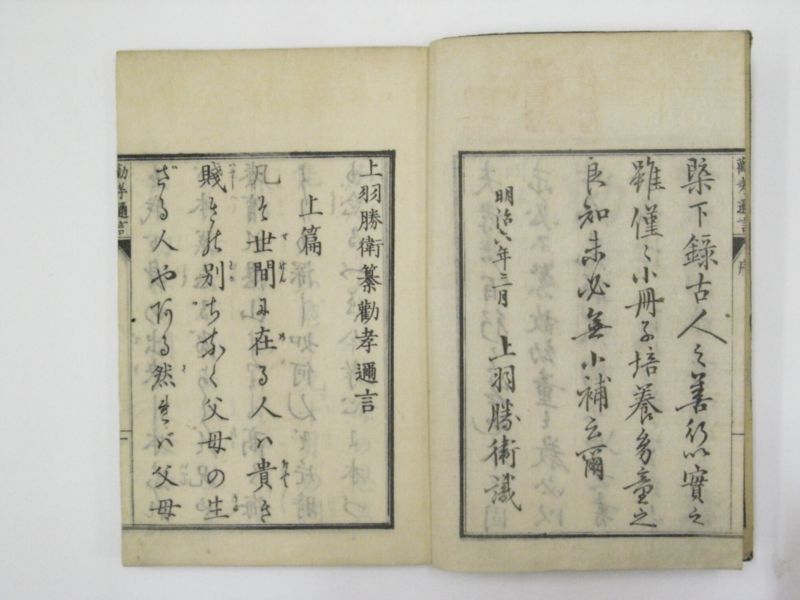 槩下錄古人之善行以實之
雖僅々小冊子培養多童之
良知未必無小補云爾
明治六年三月 上羽勝衛識
勸孝邇言 序
上羽勝衛纂勸孝邇言
上篇
凡そ世間に在る人ハ貴き
賤きの別ちなく父母の生
ざる人や阿る然れバ父母
勸孝邇言